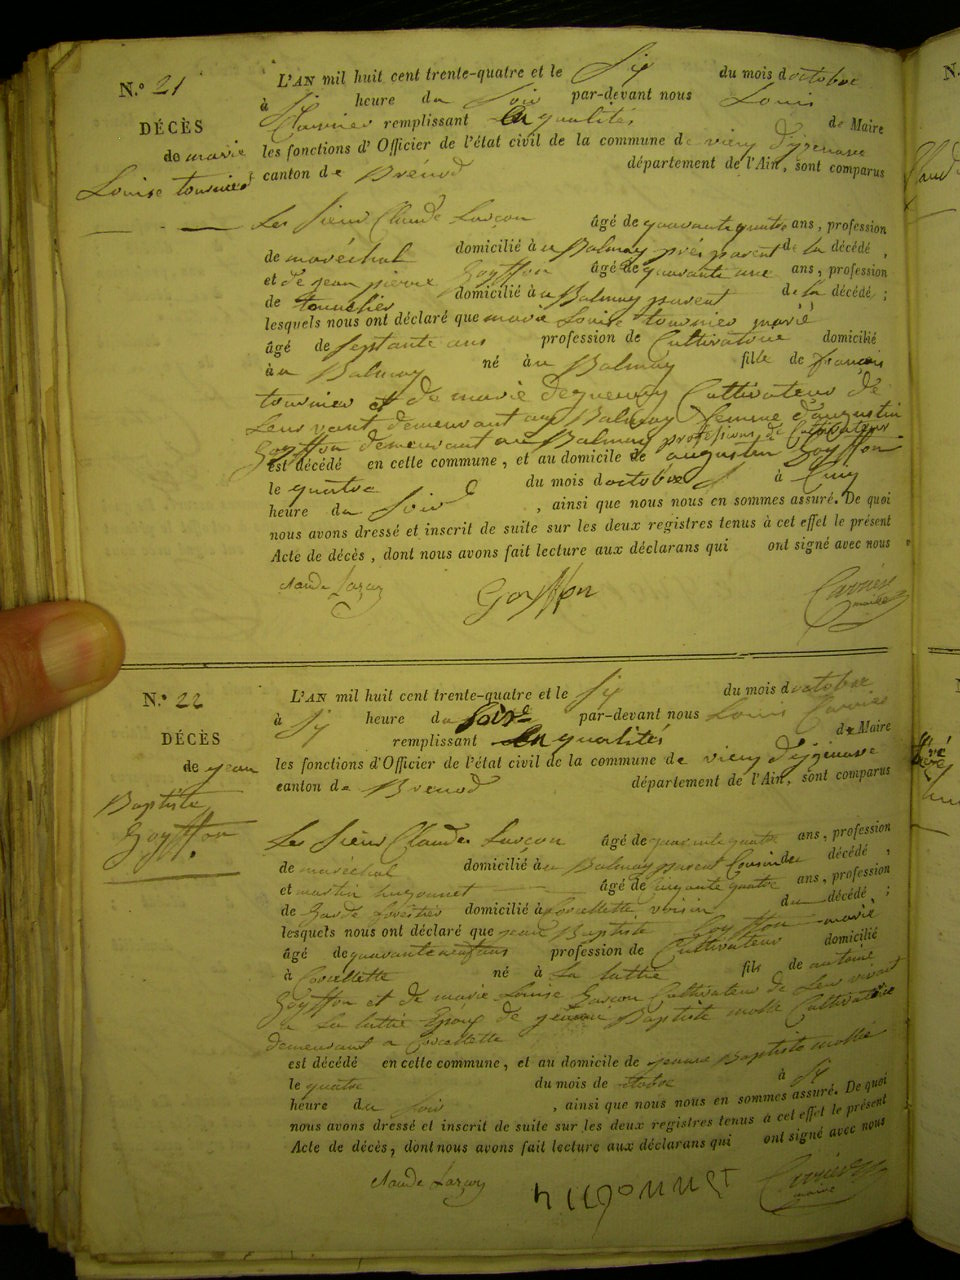 N.° 21
L'AN mil huit cent trente-quatre et le Six du mois d octobre
à Six heure du Soir par-devant nous Louis
DÉCÈS
Carrier remplissant en qualités de Maire
de marie
les fonctions d' Officier de l'état civil de la commune de vieu d'yzenave
Louise tournier
canton de Brénod département de l'Ain, sont comparus
Les Sieur Claude Larçon âgé de quarante quatre ans, profession
de maréchal domicilié à au Balmay près parent de la décédé,
et de jean pierre Goyffon âgé de quarante une ans, profession
de domicilié à au Balmay parent de la décédé;
lesquels nous ont déclaré que marie Louise tournier marié
âgé de septante ans profession de Cultivatrice domicilié
à au Balmay né à au Balmay fille de françois
tournier et de marie Cultivateur de
Leur vivant demeurant au Balmay femme d'augustin
Goyffon demeurant au Balmay profession de Cultivateur
est décédé en cette commune, et au domicile de augustin Goyffon
le quatre du mois d octobre à Cinq
heure du Soir, ainsi que nous nous en sommes assuré. De quoi
nous avons dressé et inscrit de suite sur les deux registres tenus à cet effet le présent
Acte de décès, dont nous avons fait lecture aux déclarans qui ont signé avec nous
claude Larçon Goyffon Carrier
maire
N.° 22
L'AN mil huit cent trente-quatre et le Six du mois d octobre
à Six heure du Soir par-devant nous Louis Carrier
DÉCÈS
remplissant en qualités de Maire
de jean
les fonctions d'Officier de l'état civil de la commune de vieu d'yzenave
Baptiste
canton de Brenod département de l'Ain, sont comparus
Goyffon
Les Sieur Claude Larçon âgé de quarante quatre ans, profession
de maréchal domicilié à au Balmay parent Cousin du décédé,
et martin hugonnet âgé de Cinquante quatre ans, profession
de Garde forestier domicilié à Corcellette voisin du décédé;
lesquels nous ont déclaré que jean Baptiste Goyffon marié
âgé de quarante neuf ans profession de Cultivateur domicilié
à Corcellette né à La luttie fils de antoine
Goyffon et de marie Louise Larçon Cultivateur de Leur vivant
a La luttie Epoux de Baptiste molle Cultivatrice
demeurant a Corcellette
est décédé en cette commune, et au domicile de Baptiste molle
le quatre du mois de octobre à Six
heure du Soir, ainsi que nous nous en sommes assuré. De quoi
nous avons dressé et inscrit de suite sur les deux registres tenus à cet effet le présent
Acte de décès, dont nous avons fait lecture aux déclarans qui ont signé avec nous
claude Larçon hugonnet Carrier
maire